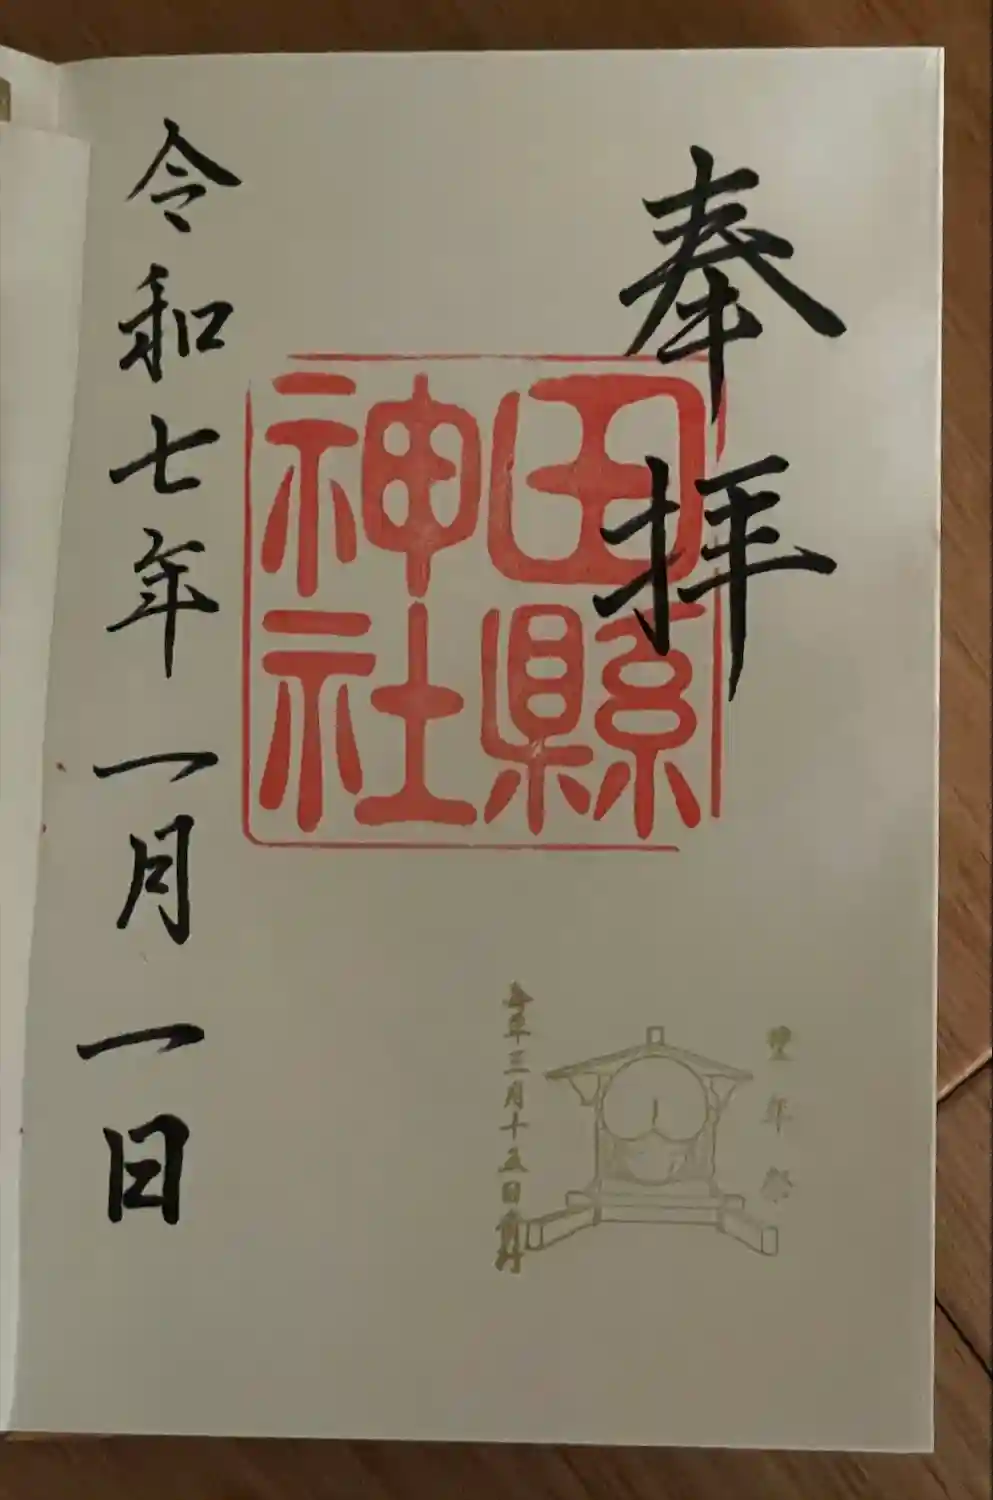 奉拝
田縣
神社
豊年祭
毎年三月十五日斎行
令和七年一月一日